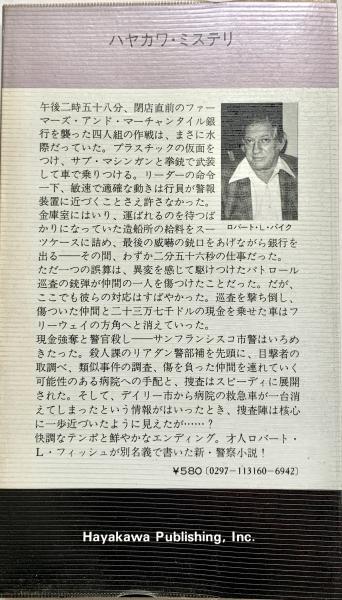 ハヤカワ・ミステリ
午後二時五十八分、閉店直前のファー
マーズ・アンド・マーチャンタイル銀
行を襲った四人組の作戦は、まさに水
際だっていた。プラスチックの仮面を
つけ、サブ・マシンガンと拳銃で武装
して車で乗りつける。リーダーの命令
一下、敏速で適確な動きは行員が警報
装置に近づくことさえ許さなかった。
金庫室にはいり、運ばれるのを待つば
かりになっていた造船所の給料をスー
ツケースに詰め、最後の威嚇の銃口をあげながら銀行を
出る――その間、わずか二分五十六秒の仕事だった。
ただ一つの誤算は、異変を感じて駆けつけたパトロール
巡査の銃弾が仲間の一人を傷つけたことだった。だが、
ここでも彼らの対応はすばやかった。巡査を撃ち倒し、
傷ついた仲間と二十三万七千ドルの現金を乗せた車はフ
リーウェイの方角へと消えていった。
現金強奪と警官殺し――サンフランシスコ市警はいろめ
きたった。殺人課のリアダン警部補を先頭に、目撃者の
取調べ、類似事件の調査、傷を負った仲間を連れていく
可能性のある病院への手配と、捜査はスピーディに展開
された。そして、デイリー市から病院の救急車が一台消
えてしまったという情報がはいったとき、捜査陣は核心
に一歩近づいたように見えたが……？
快調なテンポと鮮やかなエンディング。才人ロバート・
L・フィッシュが別名義で書いた新・警察小説！
ロバート・L・パイク
￥580 (0297-113160-6942)
Hayakawa Publishing, Inc.